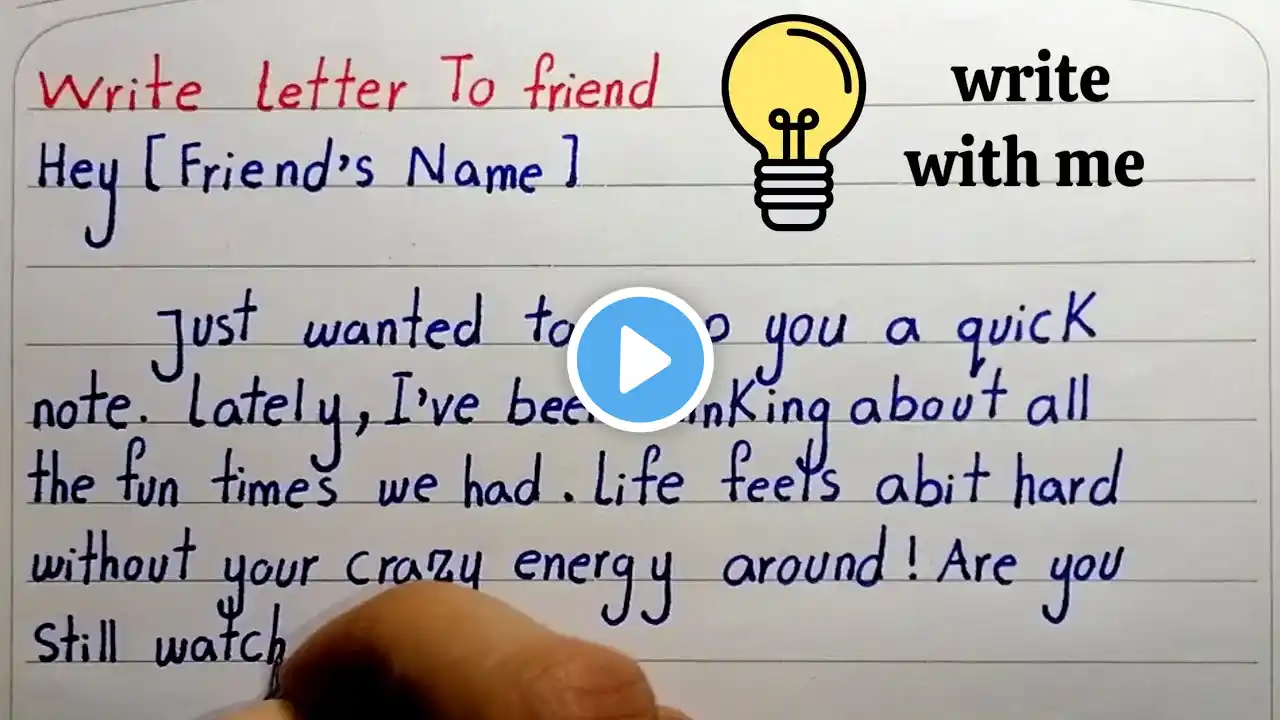 Write letter To friend
write
with me
Hey [Friend's Name]
Just wanted you a quick
note. Lately, I've about all
the fun times we had. Life feels abit hard
without your crazy energy around! Are you
Still watch